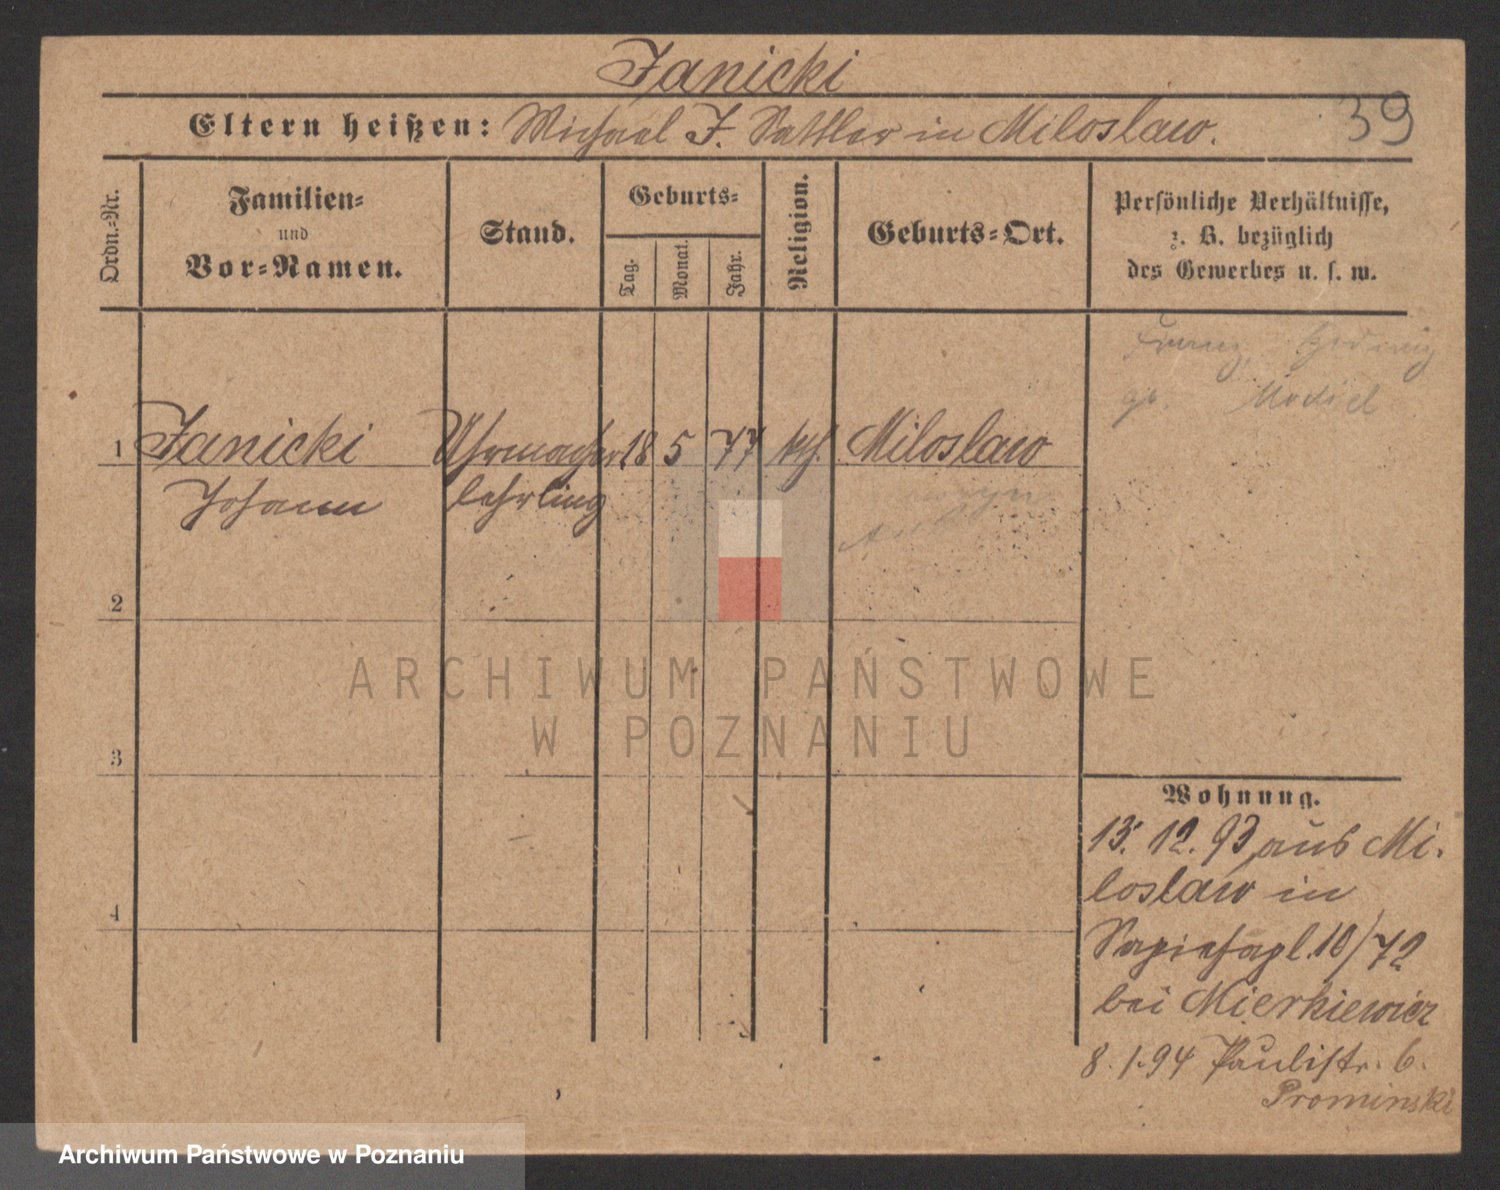 Janicki
Eltern heißen: Michael J. Sattler in Miloslaw.
39
Ordn.-Nr.
Familien-
und
Vor-Namen.
Stand.
Geburts-
Tag.
Monat.
Jahr.
Religion.
Geburts-Ort.
Persönliche Verhältnisse,
z. B. bezüglich
des Gewerbes u. s. w.
Franz
1 Janicki Uhrmacher 18 5 77 kth. Miloslaw
Johann lehrling
2
3
4
Wohnung.
15. 12. 93 aus Mi-
loslaw in
Sapiehapl. 10/72
bei Mierkiewicz
8. 1. 94 Paulistr. 6.
Prominski
ARCHIWUM PAŃSTWOWE
W POZNANIU
Archiwum Państwowe w Poznaniu